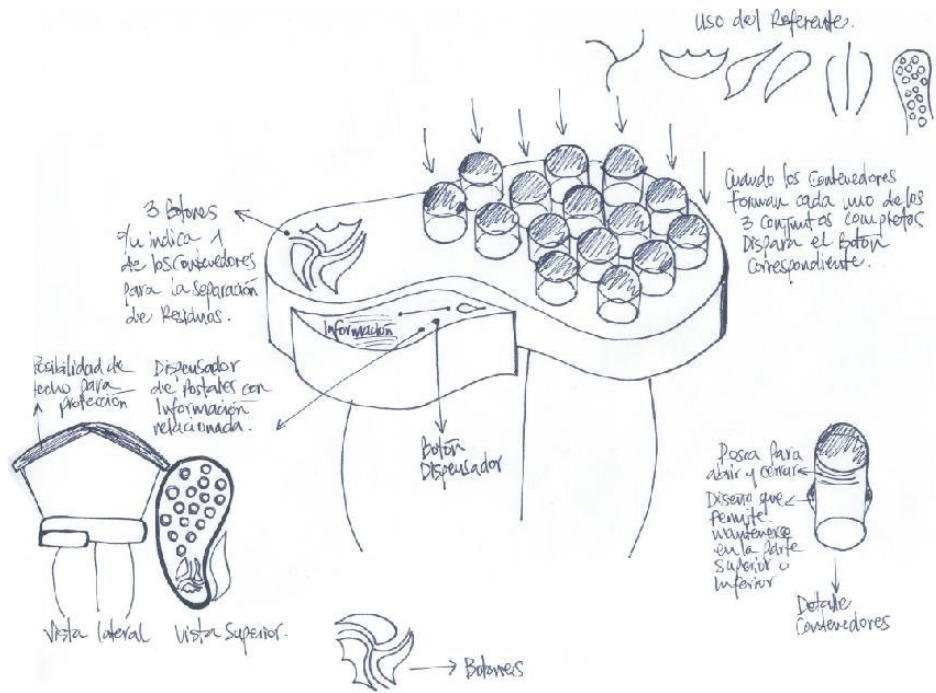 Uso del Referente.
Cuando los Contenedores
forman cada uno de los
3 conjuntos completos
Dispara el Botón
Correspondiente.
3 Botones
indica 1
de los Contenedores
para la separación
de Residuos.
Información
Posibilidad de
techo para
protección
Dispensador
de Postales con
Información
relacionada.
Botón
Dispensador
Rosca para
abrir y cerrar
Diseño que
Permite
mantenerse
en la parte
Superior o
inferior
Detalle
Contenedores
Vista lateral
Vista Superior.
Botones